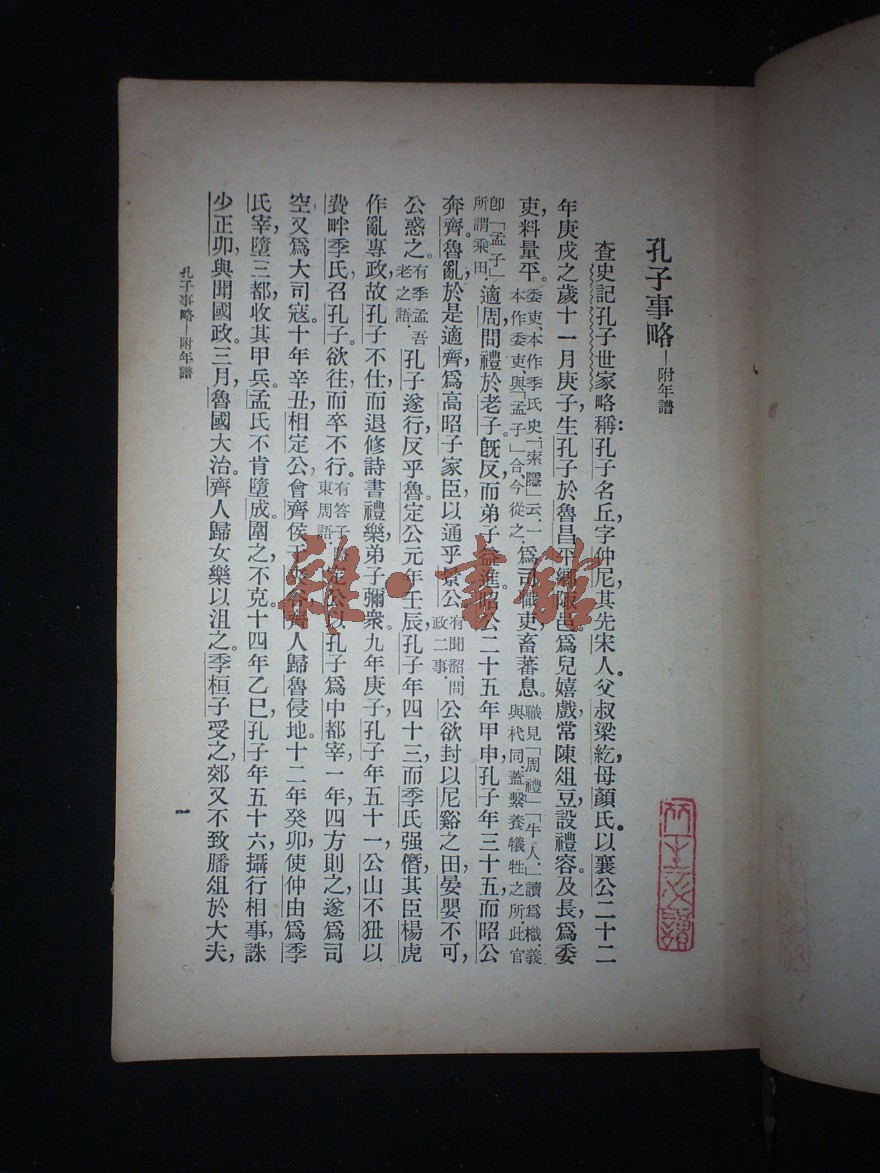 孔子事略—附年譜
查史記孔子世家略稱：孔子名丘，字仲尼，其先宋人。父叔梁紇，母顏氏。以襄公二十二
年庚戌之歲十一月庚子，生孔子於魯昌平鄉陬邑。爲兒嬉戲，常陳俎豆，設禮容。及長，爲委
吏，料量平。委吏、本作季氏史「索隱」云、一本作委吏、與「孟子」合、今從之、爲司職吏，畜蕃息。職見「周禮」「牛人、」讀爲樴義與杙同、蓋繫養犧牲之所、此官
卽「孟子」所謂乘田、適周，問禮於老子。旣反，而弟子益進。昭公二十五年甲申，孔子年三十五，而昭公
奔齊，魯亂。於是適齊，爲高昭子家臣，以通乎景公。有聞韶、問政二事、公欲封以尼谿之田，晏嬰不可，
公惑之。有季孟吾老之語、孔子遂行，反乎魯。定公元年壬辰，孔子年四十三，而季氏强僭，其臣楊虎
作亂專政，故孔子不仕，而退修詩書禮樂，弟子彌衆。九年庚子，孔子年五十一，公山不狃以
費畔季氏，召孔子，欲往，而卒不行。有答子路東周語、定公以孔子爲中都宰，一年，四方則之，遂爲司
空，又爲大司寇。十年辛丑，相定公會齊侯于夾谷，齊人歸魯侵地。十二年癸卯，使仲由爲季
氏宰，墮三都，收其甲兵。孟氏不肯墮成，圍之不克。十四年乙巳，孔子年五十六，攝行相事，誅
少正卯，與聞國政。三月，魯國大治。齊人歸女樂以沮之。季桓子受之，郊又不致膰俎於大夫，
孔子事略—附年譜
一
雜·書館